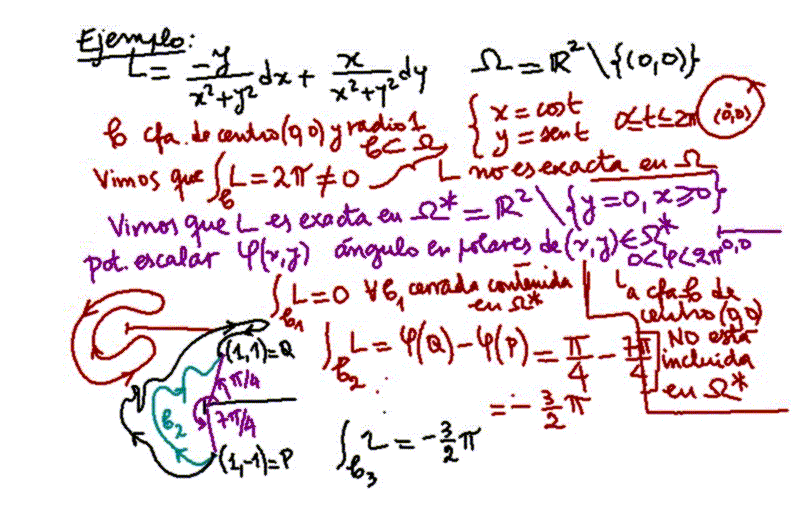 Ejemplo:
L = -y/(x²+y²) dx + x/(x²+y²) dy   Ω = ℝ² \ {(0,0)}
𝒞 cfa. de centro (0,0) y radio 1   { x = cos t   0 ≤ t ≤ 2π   (0,0)
𝒞 ⊂ Ω   { y = sen t
Vimos que ∫_𝒞 L = 2π ≠ 0   L no es exacta en Ω
Vimos que L es exacta en Ω* = ℝ² \ {y=0, x≥0}
pot. escalar φ(x,y) ángulo en polares de (x,y) ∈ Ω*   0<φ<2π   0,0
∫_𝒞₁ L = 0 ∀ 𝒞₁ cerrada contenida en Ω*
La cfa 𝒞 de centro (0,0) NO está incluida en Ω*
(1,1)=Q
π/4
𝒞₂
7π/4
(1,-1)=P
∫_𝒞₂ L = φ(Q) - φ(P) = π/4 - 7π/4
= - 3/2 π
∫_𝒞₃ L = - 3/2 π